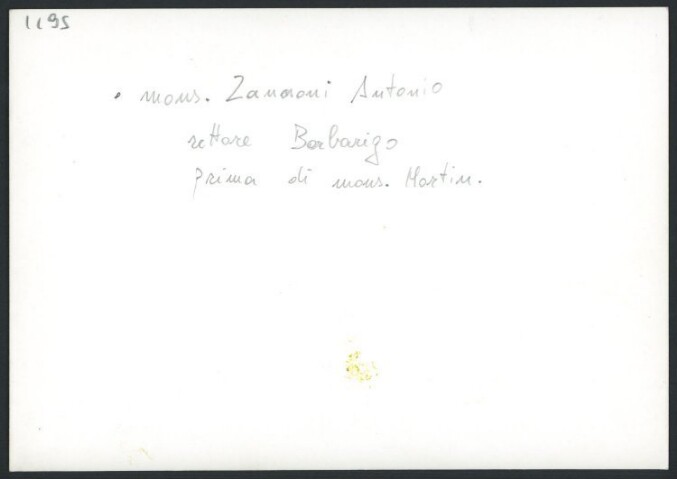 1195
• mons. Zanaoni Antonio
rettore Barbarigo
prima di mons. Martin.